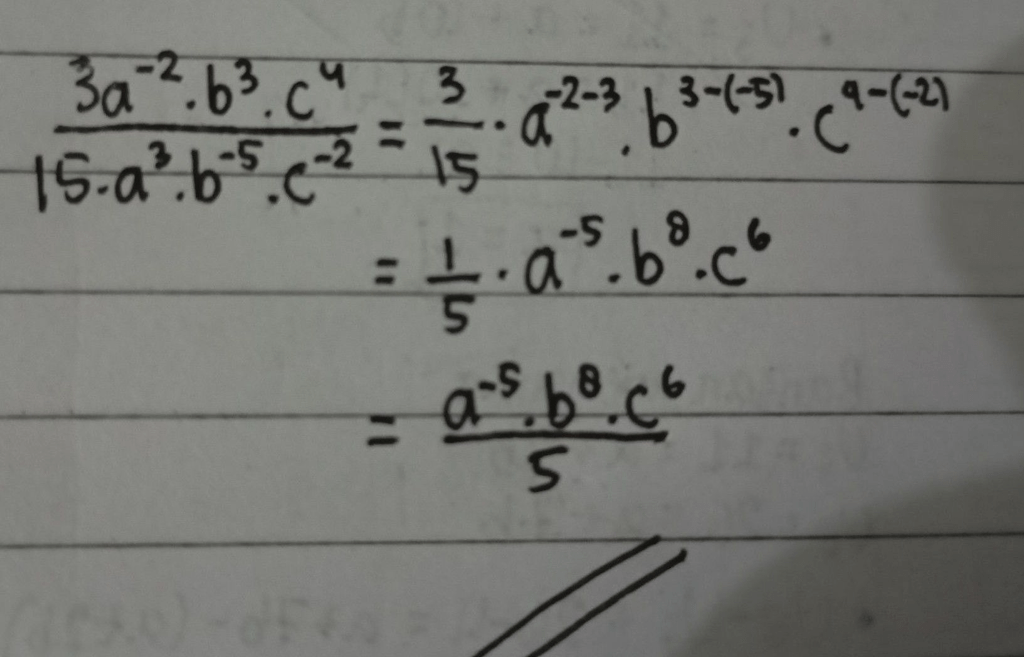 3a⁻².b³.c⁴ / 15.a³.b⁻⁵.c⁻² = 3/15 . a⁻²⁻³ . b³⁻⁽⁻⁵⁾ . c⁴⁻⁽⁻²⁾
= 1/5 . a⁻⁵ . b⁸ . c⁶
= a⁻⁵ . b⁸ . c⁶ / 5